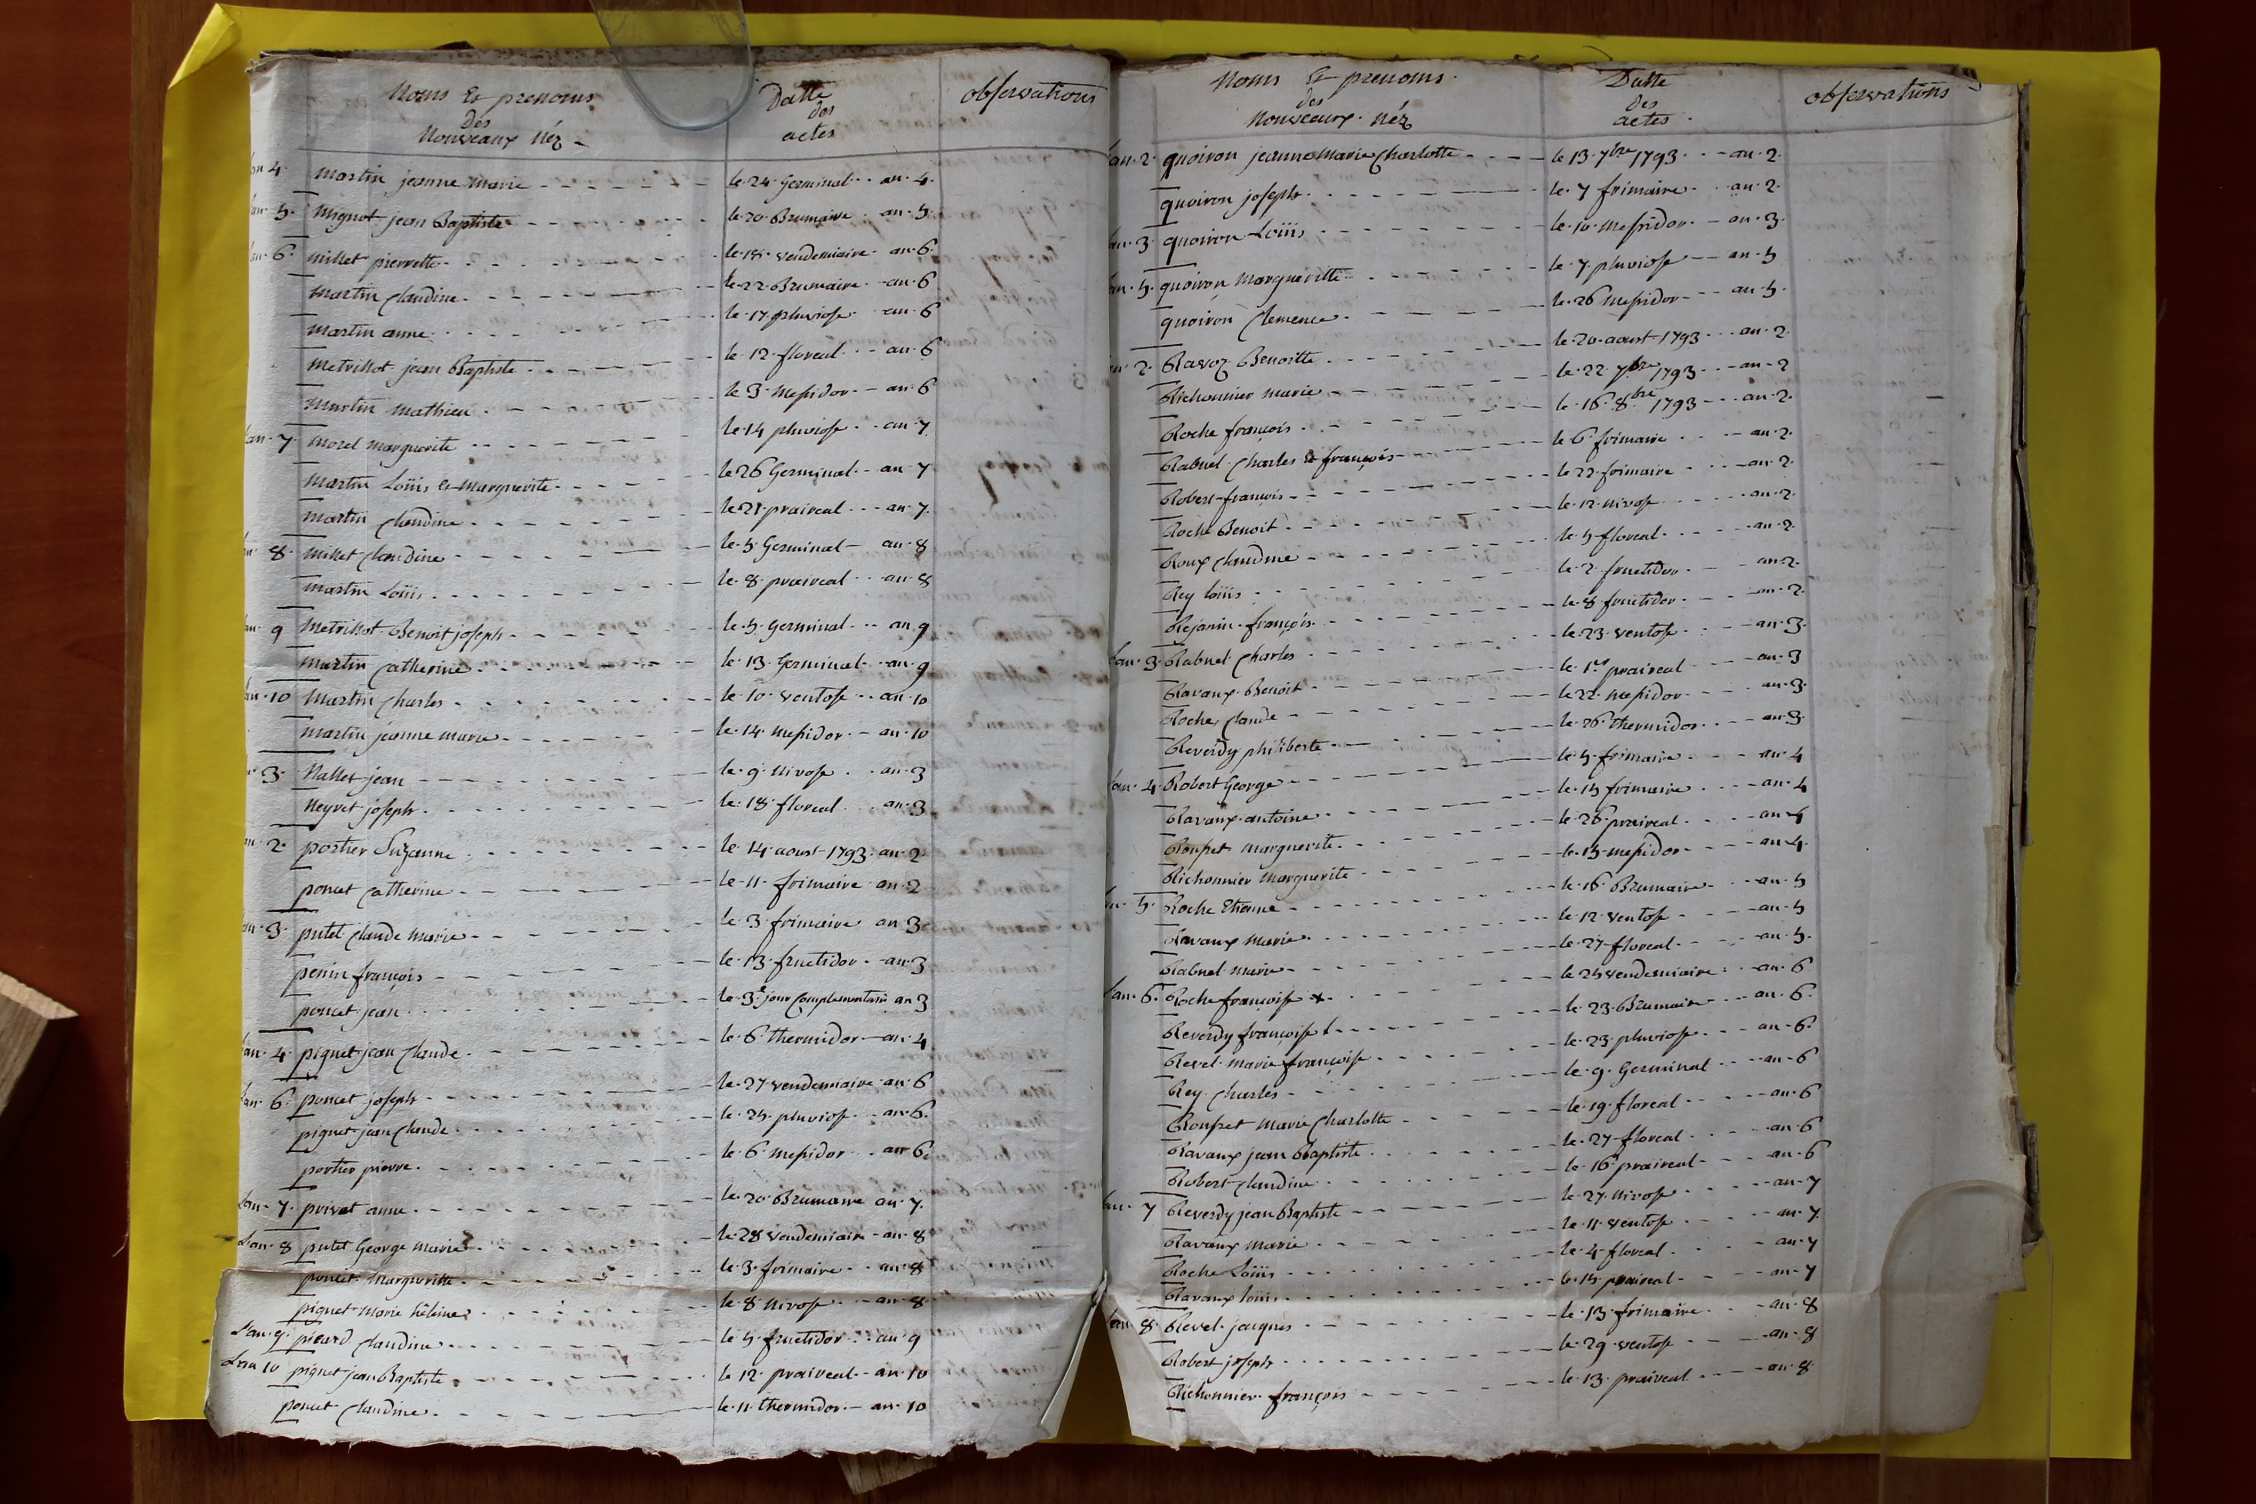 Noms Et prenoms Datte observations
des des
Nouveaux Néz actes
an 4. Martin jeanne Marie le 24 Germinal an 4.
an 5. Mignot jean Baptiste le 20 Brumaire an 5
an 6. millet pierrette le 18 vendemiaire an 6.
Martin Claudine le 22 Brumaire an 6
Martin anne le 17 pluviose an 6
Metrillot jean Baptiste le 12 floreal an 6
Martin Mathieu le 3 Messidor an 6
an 7 Morel Marguerite le 14 pluviose an 7
Martin Loüis et Marguerite le 26 Germinal an 7
Martin Claudine le 21 praireal an 7.
an 8 Millet Claudine le 5 Germinal an 8
Martin Loüis le 8 praireal an 8
an 9 Metrillot Benoit joseph le 5 Germinal an 9
Martin Catherine le 13 Germinal an 9
an 10 Martin Charles le 10 ventose an 10
Martin jeanne Marie le 14 Messidor an 10
3. Nallet jean le 9 Nivose an 3
Neyret joseph le 18 floreal an 3
an 2. portier Suzanne le 14 aoust 1793 an 2
poncet Catherine le 11 frimaire an 2
an 3. putet Claude Marie le 3 frimaire an 3
penin françois le 13 fructidor an 3
poncet jean le 3e jour Complementaire an 3
an 4. piquet jean Claude le 6 thermidor an 4
Lan 6. poncet joseph le 27 vendemiaire an 6
piquet jean Claude le 25 pluviose an 6.
portier pierre le 6 Messidor an 6.
Lan 7. privat anne le 20 Brumaire an 7.
Lan 8 putet George Marie le 28 vendemiaire an 8
poncet Marguerite le 3 frimaire an 8
piquet Marie héleine le 8 Nivose an 8
Lan 9. picard Claudine le 5 fructidor an 9
Lan 10 piquet jean Baptiste le 12 praireal an 10
poncet Claudine le 11 thermidor an 10
Noms Et prenoms Datte observations
des des
Nouveaux Néz actes
Lan 2. quoiron jeanne Marie Charlotte le 13 7bre 1793 an 2.
quoiron joseph le 7 frimaire an 2.
an 3 quoiron Loüis le 10 Messidor an 3.
an 5. quoiron Margueritte le 7 pluviose an 5
quoiron Clemence le 26 Messidor an 5.
an 2. Ravoz Benoitte le 20 aoust 1793 an 2.
Richonnier marie le 22 7bre 1793 an 2
Roche françois le 16 8bre 1793 an 2.
Rabuel Charles et françois le 6 frimaire an 2.
Robert françois le 22 frimaire an 2.
Roche Benoit le 12 Nivose an 2.
Roux Claudine le 5 floreal an 2.
Rey loüis le 2 fructidor an 2.
Rejanin françois le 8 fructidor an 2.
Lan 3. Rabuel Charles le 23 ventose an 3.
Ravaux Benoit le 1er praireal an 3
Roche Claude le 22 Messidor an 3.
Reverdy philiberte le 26 thermidor an 3.
Lan 4 Robert George le 5 frimaire an 4
Ravaux antoine le 15 frimaire an 4
Rousset marguerite le 26 praireal an 4
Richonnier Marguerite le 15 Messidor an 4.
an 5. Roche Etienne le 16 Brumaire an 5
Ravaux Marie le 12 ventose an 5
Rabuel marie le 27 floreal an 5.
Lan 6. Roche françoise le 25 vendemiaire an 6
Reverdy françoise le 23 Brumaire an 6.
Revel marie françoise le 23 pluviose an 6.
Rey Charles le 9 Germinal an 6
Rousset Marie Charlotte le 19 floreal an 6
Ravaux jean Baptiste le 27 floreal an 6
Robert Claudine le 16 praireal an 6
an 7 Reverdy jean Baptiste le 27 Nivose an 7
Ravaux Marie le 11 ventose an 7.
Roche Loüis le 4 floreal an 7
Ravaux loüis le 15 praireal an 7
Lan 8. Revel jacques le 13 frimaire an 8
Robert joseph le 29 ventose an 8
Richonnier françois le 13 praireal an 8